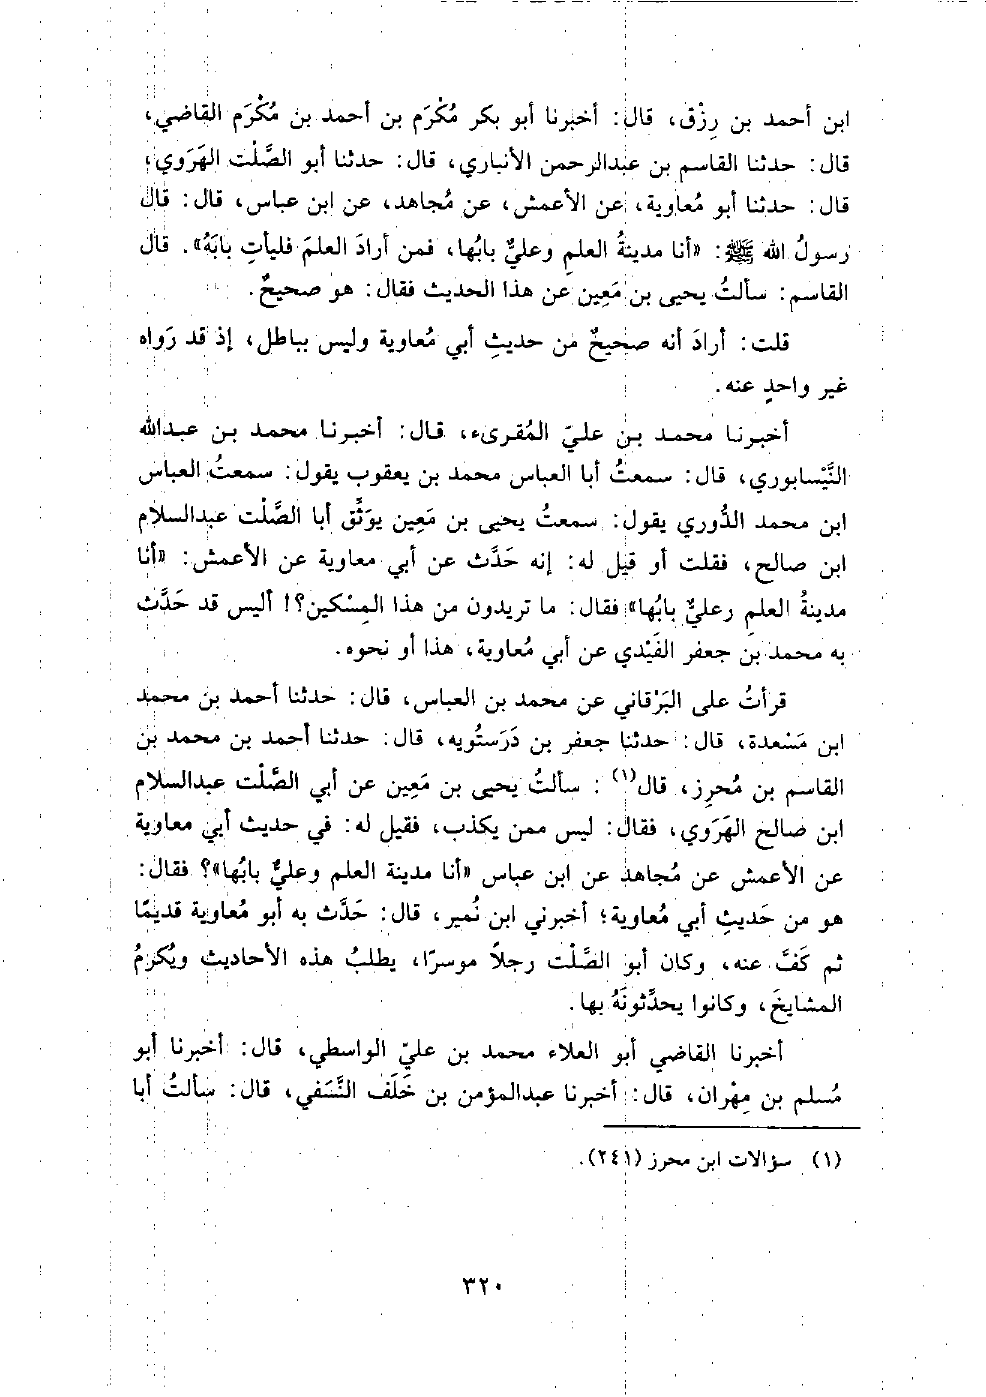 ابن أحمد بن رِزْق، قال: أخبرنا أبو بكر مُكْرَم بن أحمد بن مُكْرَم القاضي،
قال: حدثنا القاسم بن عبدالرحمن الأنباري، قال: حدثنا أبو الصَّلْت الهَرَوي،
قال: حدثنا أبو مُعاوية، عن الأعمش، عن مُجاهد، عن ابن عباس، قال: قال
رسولُ الله ﷺ: «أنا مدينةُ العلمِ وعليٌّ بابُها، فمن أرادَ العلمَ فليأتِ بابَهُ». قال
القاسم: سألتُ يحيى بن مَعِين عن هذا الحديث فقال: هو صحيحٌ.
قلت: أرادَ أنه صحيحٌ من حديثِ أبي مُعاوية وليس بباطل، إذ قد رَواه
غير واحدٍ عنه.
أخبرنا محمد بن عليّ المُقرىء، قال: أخبرنا محمد بن عبدالله
النَّيْسابوري، قال: سمعتُ أبا العباس محمد بن يعقوب يقول: سمعتُ العباس
ابن محمد الدُّوري يقول: سمعتُ يحيى بن مَعِين يوَثِّق أبا الصَّلْت عبدالسلام
ابن صالح، فقلت أو قيل له: إنه حَدَّث عن أبي معاوية عن الأعمش: «أنا
مدينةُ العلمِ وعليٌّ بابُها» فقال: ما تريدون من هذا المِسْكين؟! أليس قد حَدَّث
به محمد بن جعفر الفَيْدي عن أبي مُعاوية، هذا أو نحوه.
قرأتُ على البَرْقاني عن محمد بن العباس، قال: حدثنا أحمد بن محمد
ابن مَسْعدة، قال: حدثنا جعفر بن دَرَستُويه، قال: حدثنا أحمد بن محمد بن
القاسم بن مُحرِز، قال(١): سألتُ يحيى بن مَعِين عن أبي الصَّلْت عبدالسلام
ابن صالح الهَرَوي، فقال: ليس ممن يكذب، فقيل له: في حديث أبي معاوية
عن الأعمش عن مُجاهد عن ابن عباس «أنا مدينة العلم وعليٌّ بابُها»؟ فقال:
هو من حَديثِ أبي مُعاوية؛ أخبرني ابن نُمير، قال: حَدَّث به أبو مُعاوية قديمًا
ثم كَفَّ عنه، وكان أبو الصَّلْت رجلاً موسرًا، يطلبُ هذه الأحاديث ويُكرمُ
المشايخَ، وكانوا يحدِّثونَهُ بها.
أخبرنا القاضي أبو العلاء محمد بن عليّ الواسطي، قال: أخبرنا أبو
مُسلم بن مِهْران، قال: أخبرنا عبدالمؤمن بن خَلَف النَّسَفي، قال: سألتُ أبا
(١) سؤالات ابن محرز (٢٤١).
٣٢٠